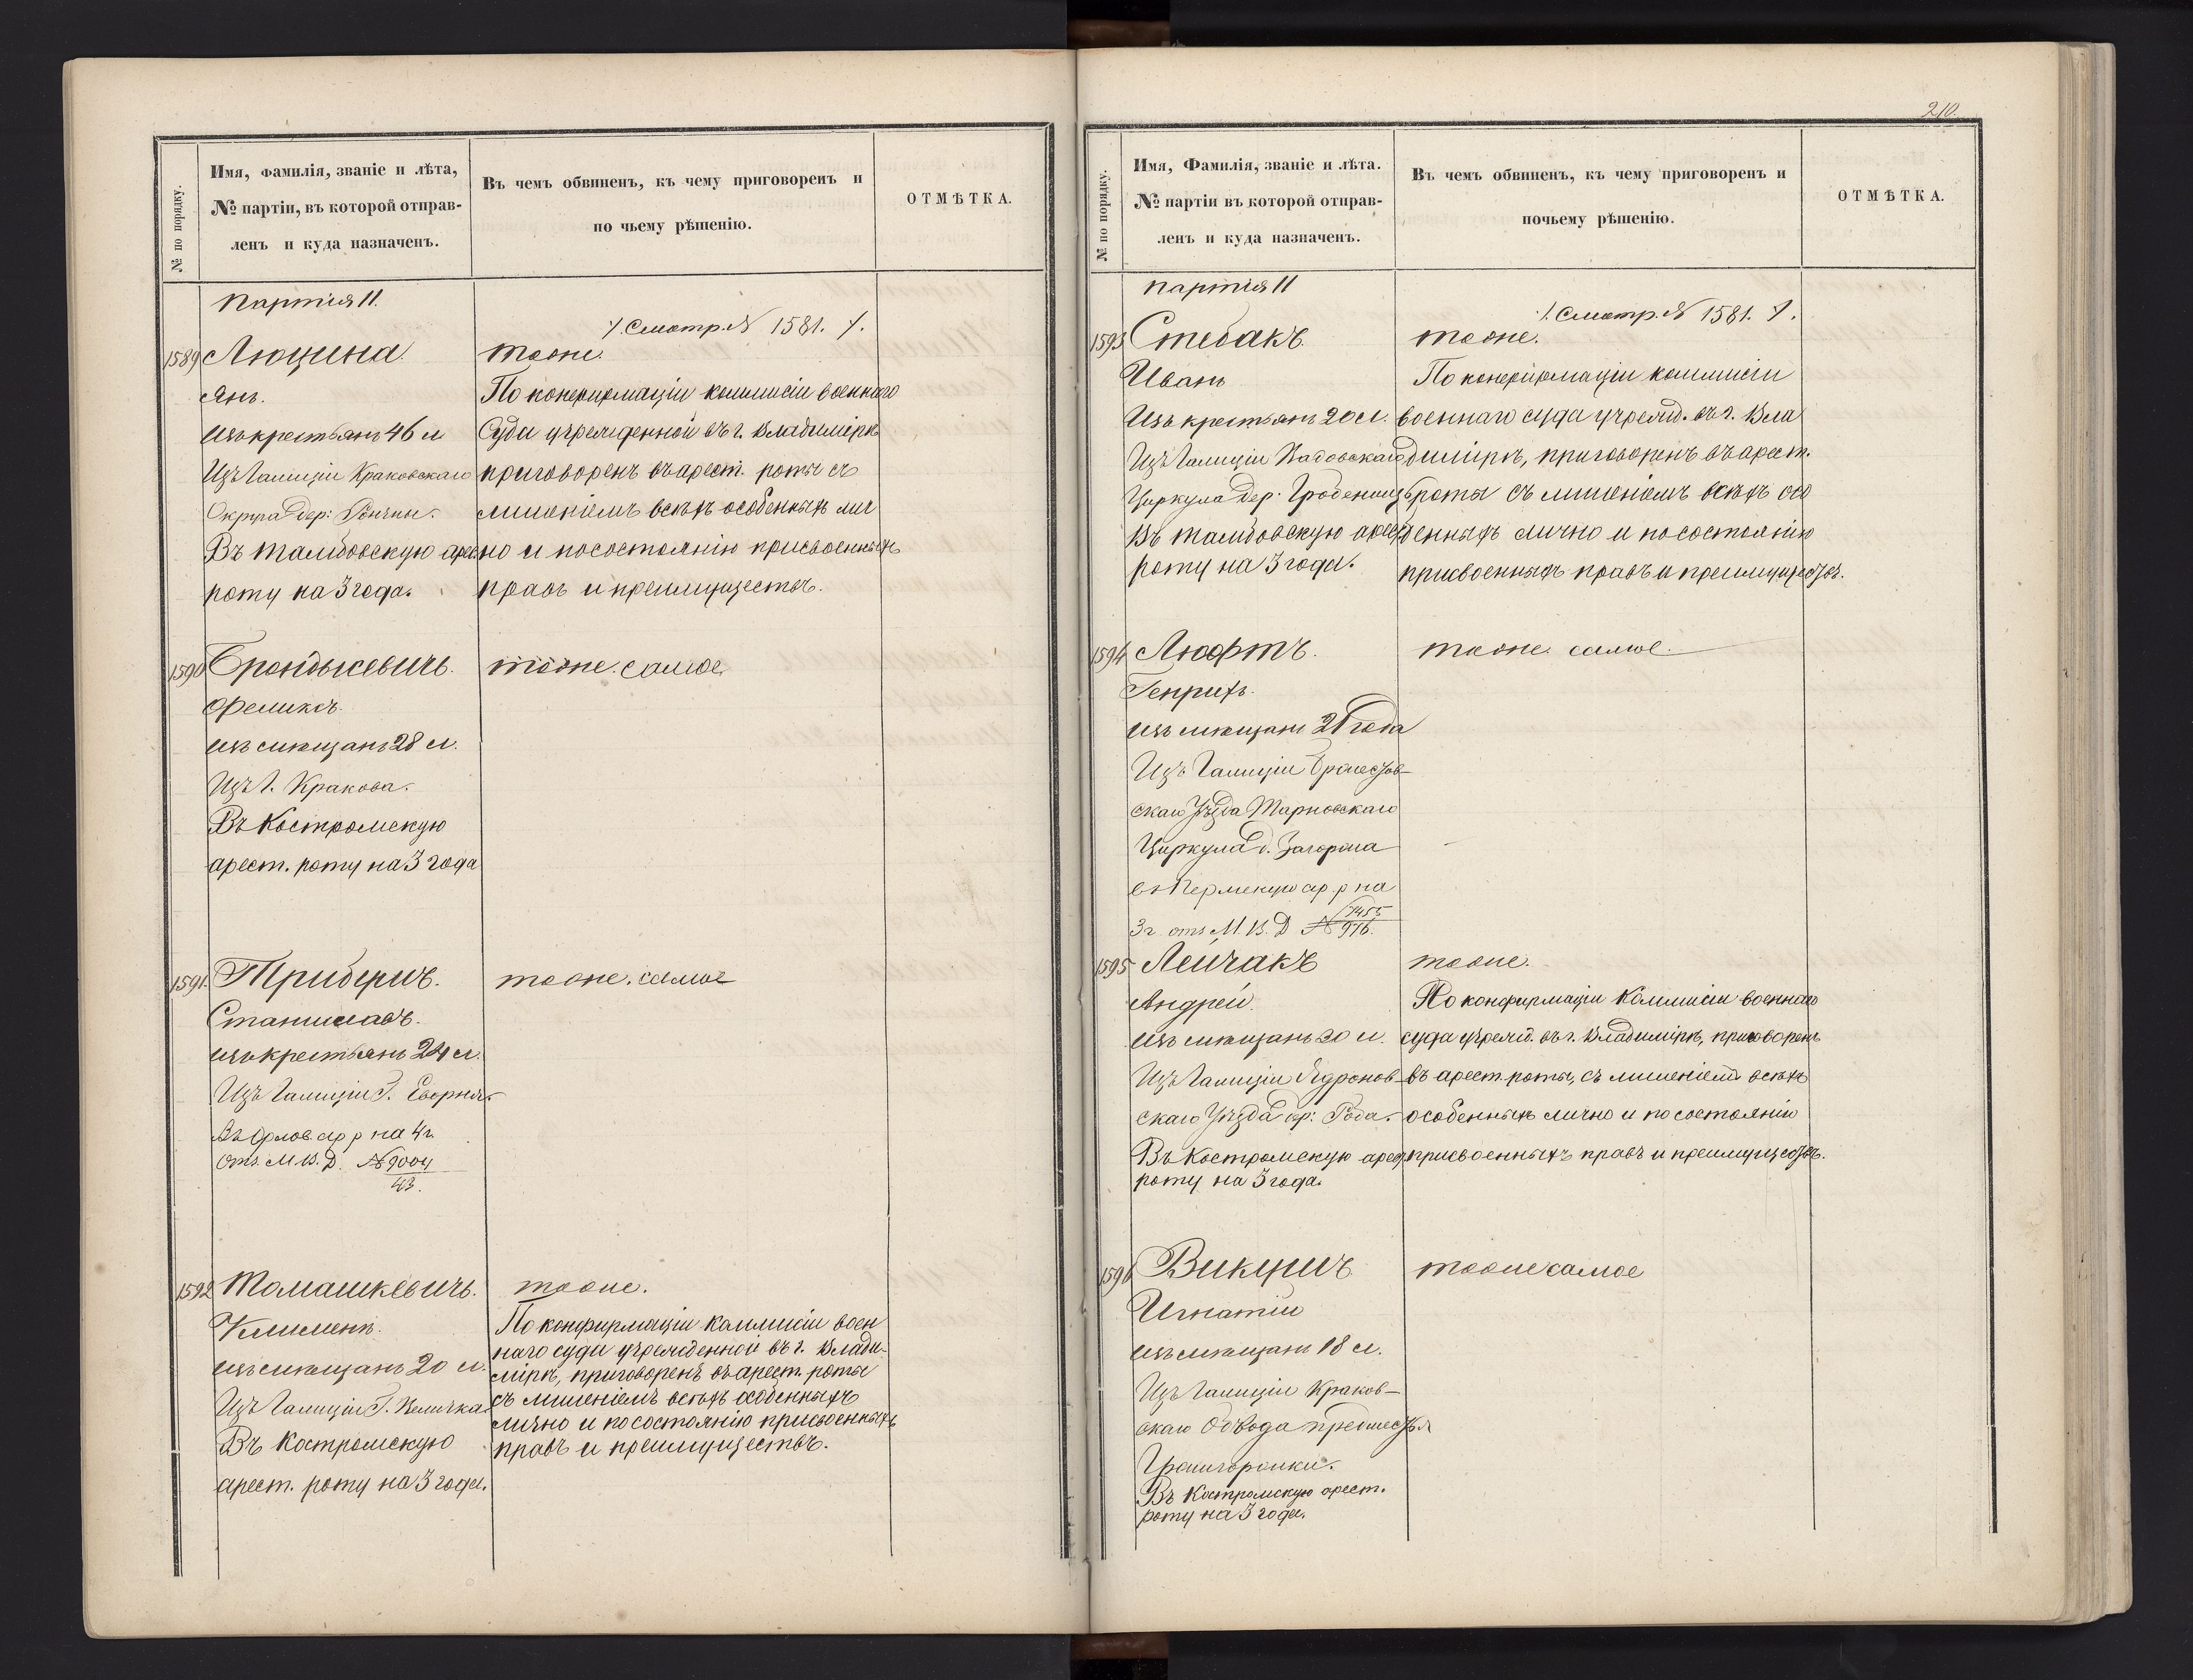 № по порядку.
Имя, фамилія, званіе и лѣта,
№ партіи, въ которой отправ-
ленъ и куда назначенъ.
Въ чемъ обвиненъ, къ чему приговоренъ и
по чьему рѣшенію.
ОТМѢТКА.
Партія 11.
/. Смотр. № 1581. /.
1589 Люцина.
Янъ.
изъ крестьянъ 46 л
Изъ Галиціи Краковскаго
Округа дер:
Въ тамбовскую арес
роту на 3 года.
тоже.
По конфирмаціи коммисіи военнаго
Суда учрежденной въ г. Владимірѣ
приговоренъ въ арест. роты съ
лишеніемъ всѣхъ особенныхъ лич
но и по состоянію присвоенныхъ
правъ и преимуществъ.
1590
Феликсъ.
изъ мѣщанъ 28 л.
Изъ г. Кракова.
Въ Костромскую
арест. роту на 3 года
тоже. самое
1591.
Станиславъ.
изъ крестьянъ 24 л.
Изъ Галиціи Г.
Въ Орлов. ар р на 4 г.
отз. М. В. Д. № 9004
43.
тоже. самое
1592 Томашкевичъ.
Климентъ.
изъ мѣщанъ 20 л.
Изъ Галиціи Г. Величка
Въ Костромскую
арест. роту на 3 года.
тоже.
По конфирмаціи коммисіи воен
наго суда учрежденной въ г. Влади-
мірѣ, приговоренъ въ арест. роты
съ лишеніемъ всѣхъ особенныхъ
лично и по состоянію присвоенныхъ
правъ и преимуществъ.
210.
№ по порядку.
Имя, Фамилія, званіе и лѣта.
№ партіи въ которой отправ-
ленъ и куда назначенъ.
Въ чемъ обвиненъ, къ чему приговоренъ и
почьему рѣшенію.
ОТМѢТКА.
партія 11
/. Смотр. № 1581. /.
1593 Стебакъ.
Иванъ
Изъ крестьянъ 20 л.
Изъ Галиціи
Циркула дер.
Въ тамбовскую арест
роту на 3 года.
тоже.
По конфирмаціи коммисіи
военнаго суда учрежд. въ г. Вла
димірѣ, приговоренъ въ арест.
роты съ лишеніемъ всѣхъ осо
бенныхъ лично и по состоянію
присвоенныхъ правъ и преимуществъ.
1594 Люфтъ.
Генрихъ.
изъ мѣщанъ 21 года
Изъ Галиціи
скаго Уѣзда Тарновскаго
Циркула д.
въ Пермскую ар. р на
3 г. отз М. В. Д № 7455
976.
тоже. самое.
1595 Лейчакъ
Андрей.
изъ мѣщанъ 20 л.
Изъ Галиціи
скаго Уѣзда
Въ Костромскую арес
роту на 3 года.
тоже.
По конфирмаціи Коммисіи военнаго
суда учрежд. въ г. Владимірѣ, приговоренъ
въ арест. роты, съ лишеніемъ всѣхъ
особенныхъ лично и по состоянію
присвоенныхъ правъ и преимуществъ.
1596
Игнатій
изъ мѣщанъ 18 л.
Изъ Галиціи Краков-
скаго Обвода предместья
Въ Костромскую арест.
роту на 3 года.
тоже самое